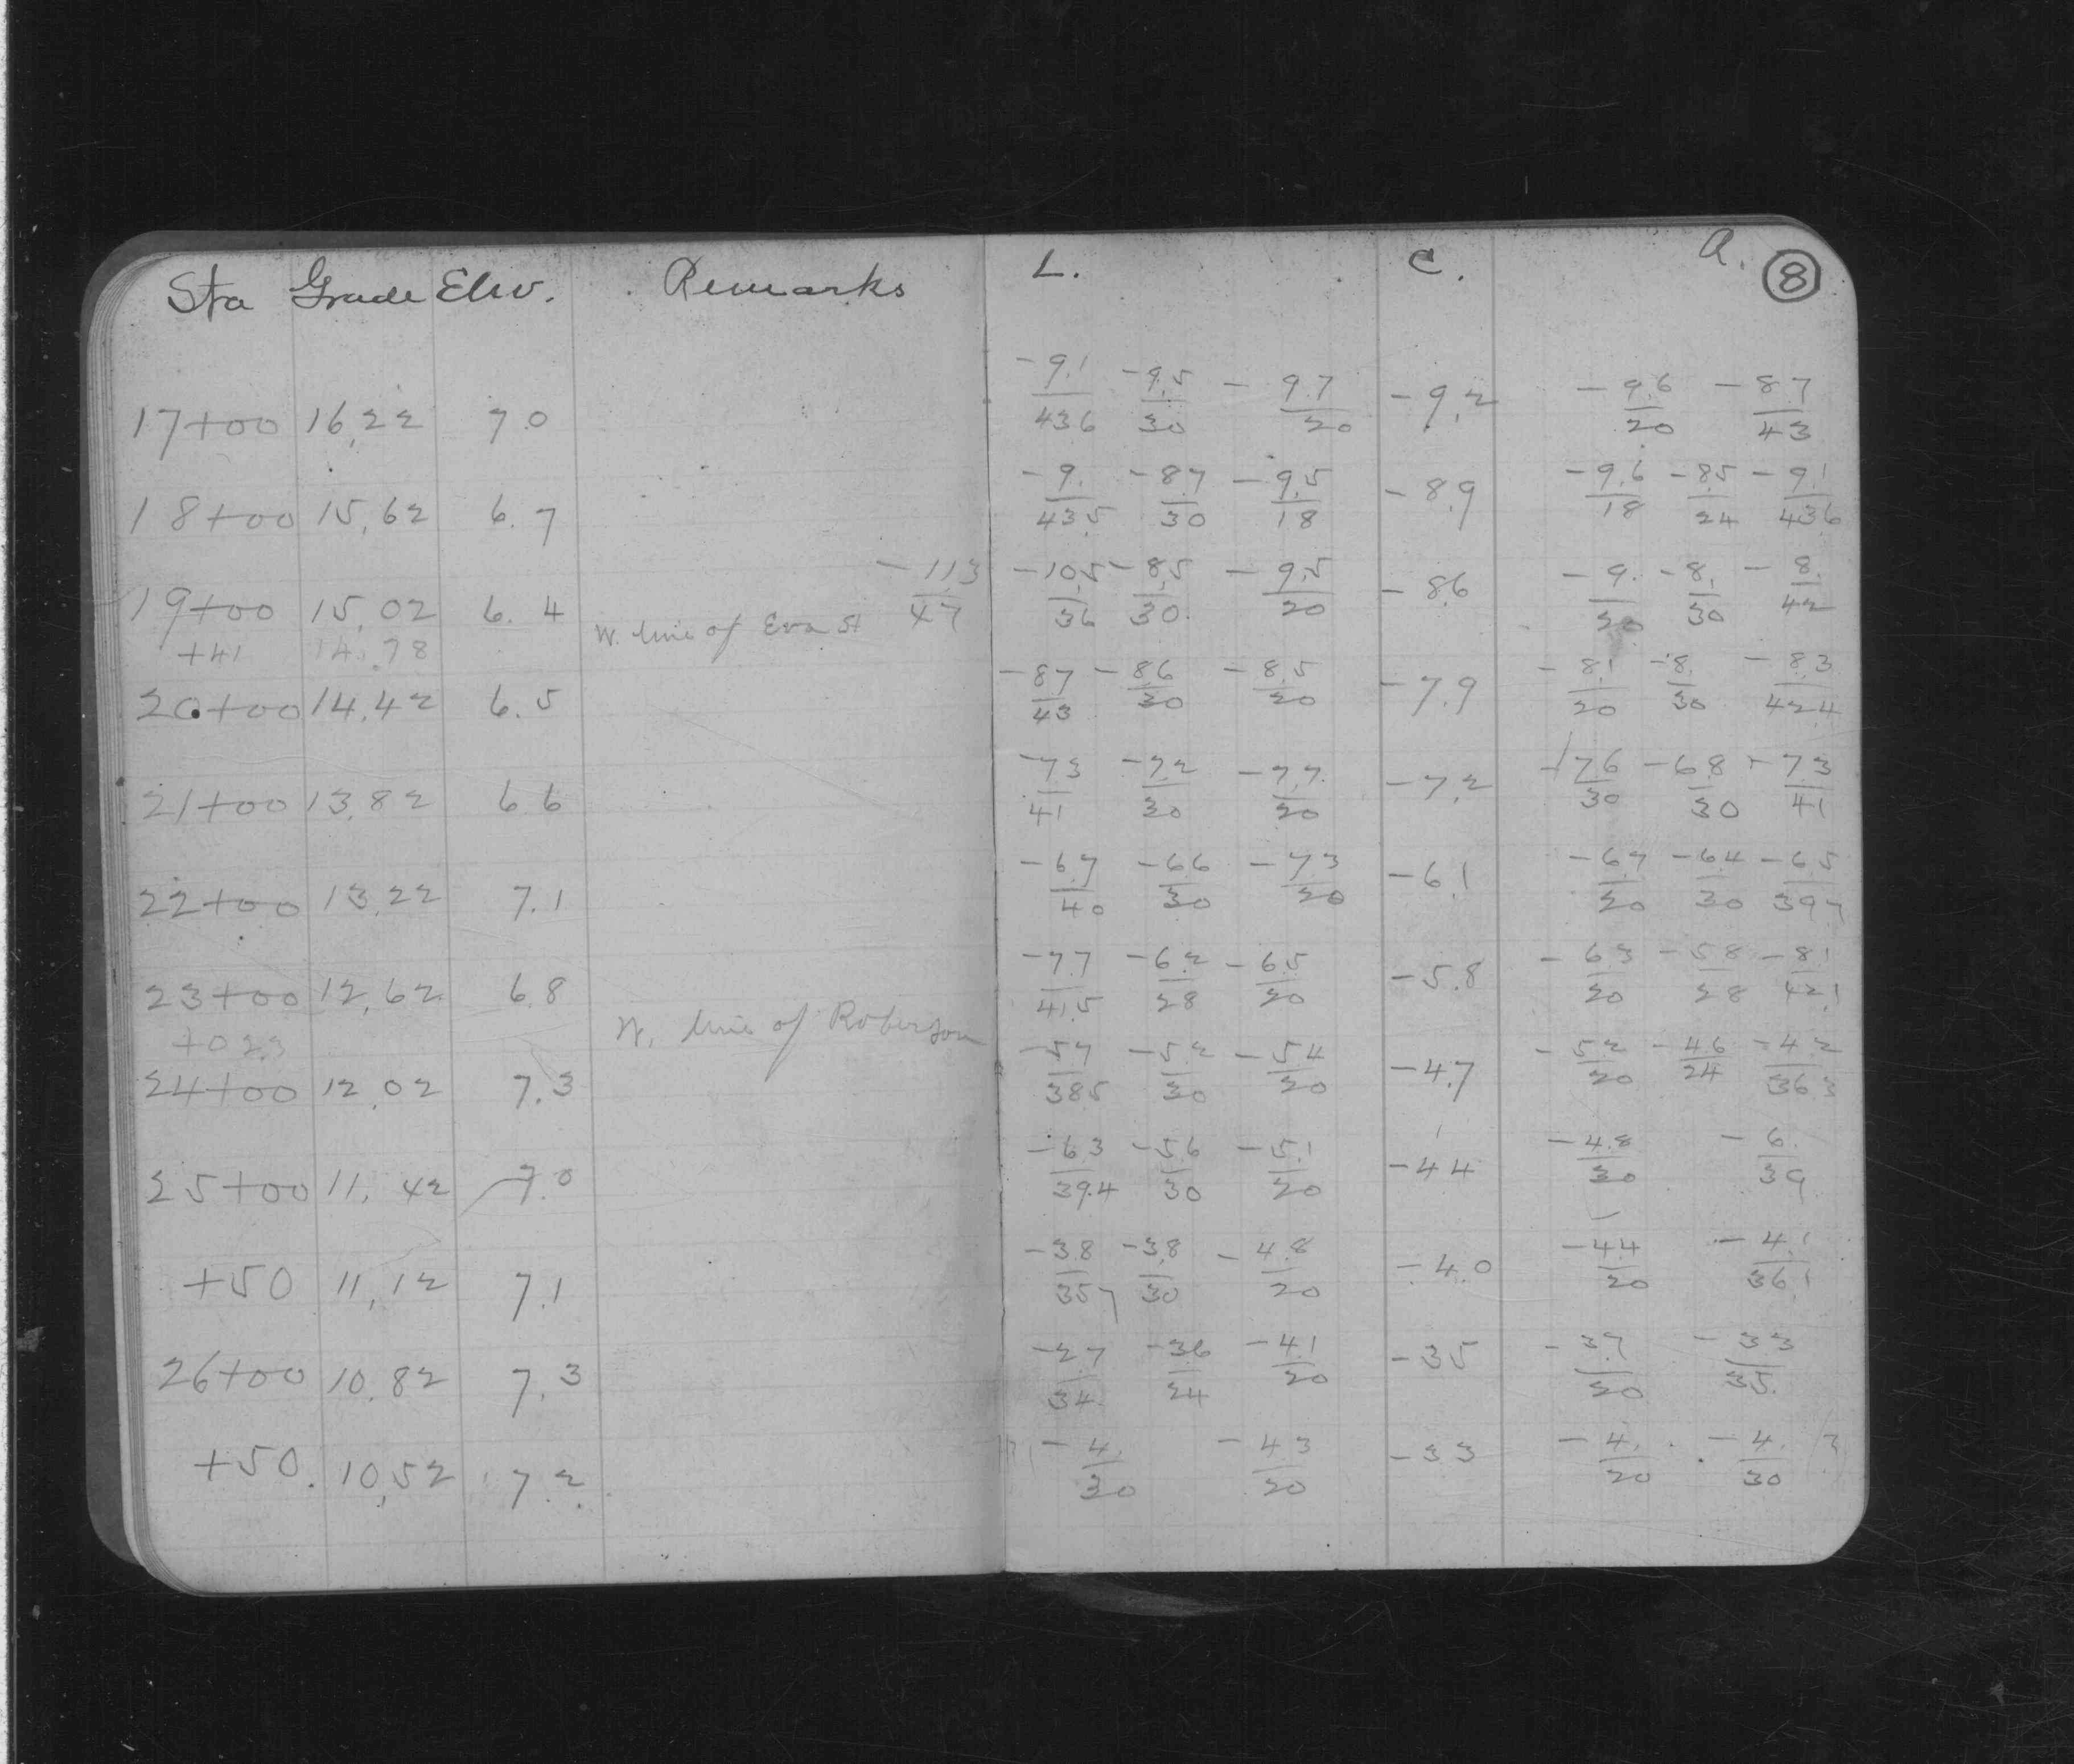 Sta Grade Elev. Remarks L. C. R. 8
17+00 16.22 7.0 -9.1/43.6 -9.5/30 -9.7/20 -9.2 -9.6/20 -8.7/43
18+00 15.62 6.7 -9./43.5 -8.7/30 -9.5/18 -8.9 -9.6/18 -8.5/24 -9.1/43.6
19+00 15.02 6.4 W. line of Eva St -11.3/47 -10.5/36 -8.5/30. -9.5/20 -8.6 -9./20 -8./30 -8./42
+41 14.78
20+00 14.42 6.5 -8.7/43 -8.6/30 -8.5/20 -7.9 -8.1/20 -8./30 -8.3/42.4
21+00 13.82 6.6 -7.3/41 -7.2/30 -7.7/20 -7.2 -7.6/30 -6.8/30 -7.3/41
22+00 13.22 7.1 -6.7/40 -6.6/30 -7.3/20 -6.1 -6.7/20 -6.4/30 -6.5/39.7
23+00 12.62 6.8 -7.7/41.5 -6.2/28 -6.5/20 -5.8 -6.3/20 -5.8/28 -8.1/42.1
W. line of Roberson
24+00 12.02 7.3 -5.7/38.5 -5.2/30 -5.4/20 -4.7 -5.2/20 -4.6/24 -4.2/36.3
25+00 11.42 7.0 -6.3/39.4 -5.6/30 -5.1/20 -4.4 -4.8/20 -6./39
+50 11.12 7.1 -3.8/35.7 -3.8/30 -4.8/20 -4.0 -4.4/20 -4.1/36.1
26+00 10.82 7.3 -2.7/34 -3.6/24 -4.1/20 -3.5 -3.7/20 -3.3/35.
+50. 10.52 7.2 -4./30 -4.3/20 -3.3 -4./20 -4./30